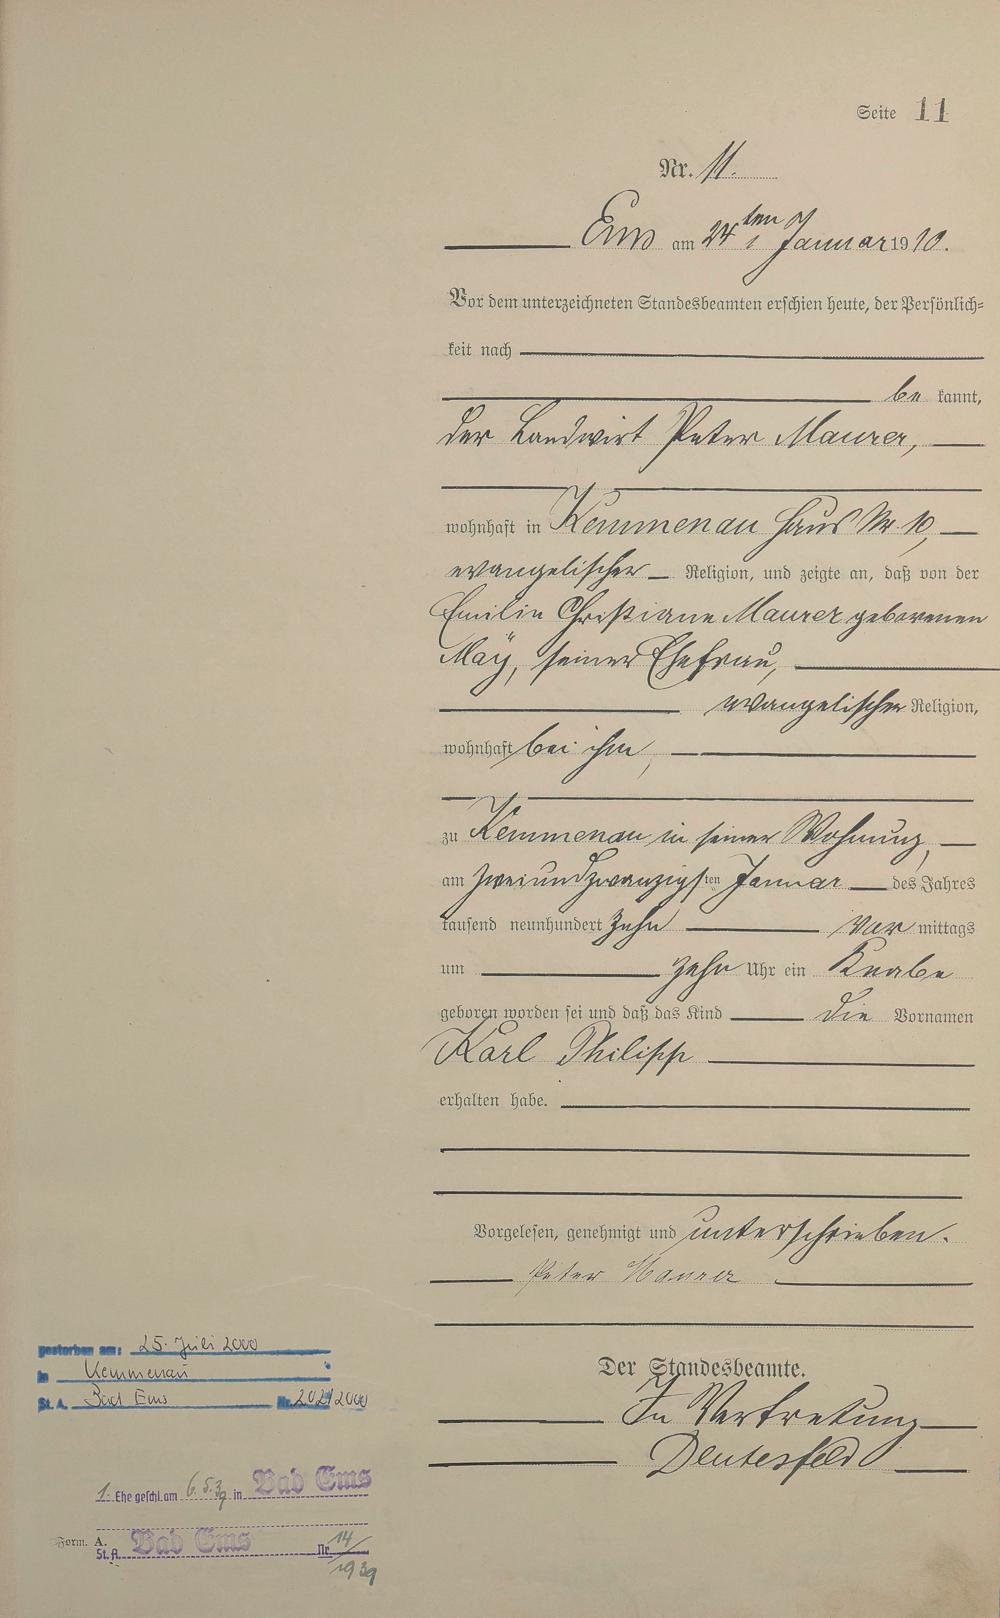 Seite 11
Nr. 11.
Ems am 24ten Januar 1910.
Vor dem unterzeichneten Standesbeamten erschien heute, der Persönlich-
keit nach
be kannt,
der Landwirt Peter Maurer,
wohnhaft in Kemmenau Haus Nr. 10,
evangelischer Religion, und zeigte an, daß von der
Emilie Christiane Maurer geborenen
May, seiner Ehefrau,
evangelischer Religion,
wohnhaft bei ihm,
zu Kemmenau in seiner Wohnung,
am zweiundzwanzigsten Januar des Jahres
tausend neunhundert zehn vor mittags
um zehn Uhr ein Knabe
geboren worden sei und daß das Kind die Vornamen
Karl Philipp
erhalten habe.
Vorgelesen, genehmigt und unterschrieben.
Peter Maurer
Der Standesbeamte.
In Vertretung
gestorben am: 25. Juli 2000
in Kemmenau
St. A. Bad Ems Nr. 202/2000
1. Ehe geschl. am 6.5.39 in Bad Ems
Form. A.
St. A. Bad Ems Nr. 14/
1939